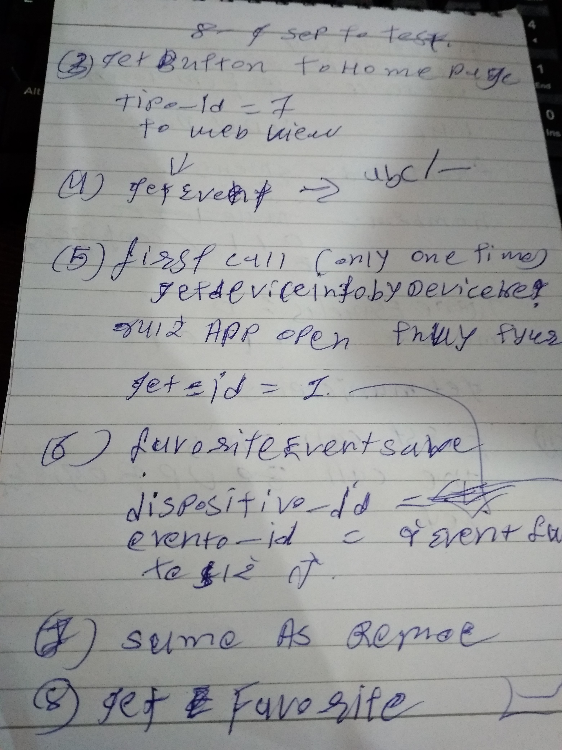 8-9 sep to test.
(3) get Button to Home page
tipo-id = 7
to web view
(4) get Event → abc/—
(5) first call (only one time)
getdeviceinfobyDevicekey
APP open
get = id = 1
(6) favorite Event save
dispositivo_id =
evento-id = event fa
to
(7) same As Remoe
(8) get Favorite